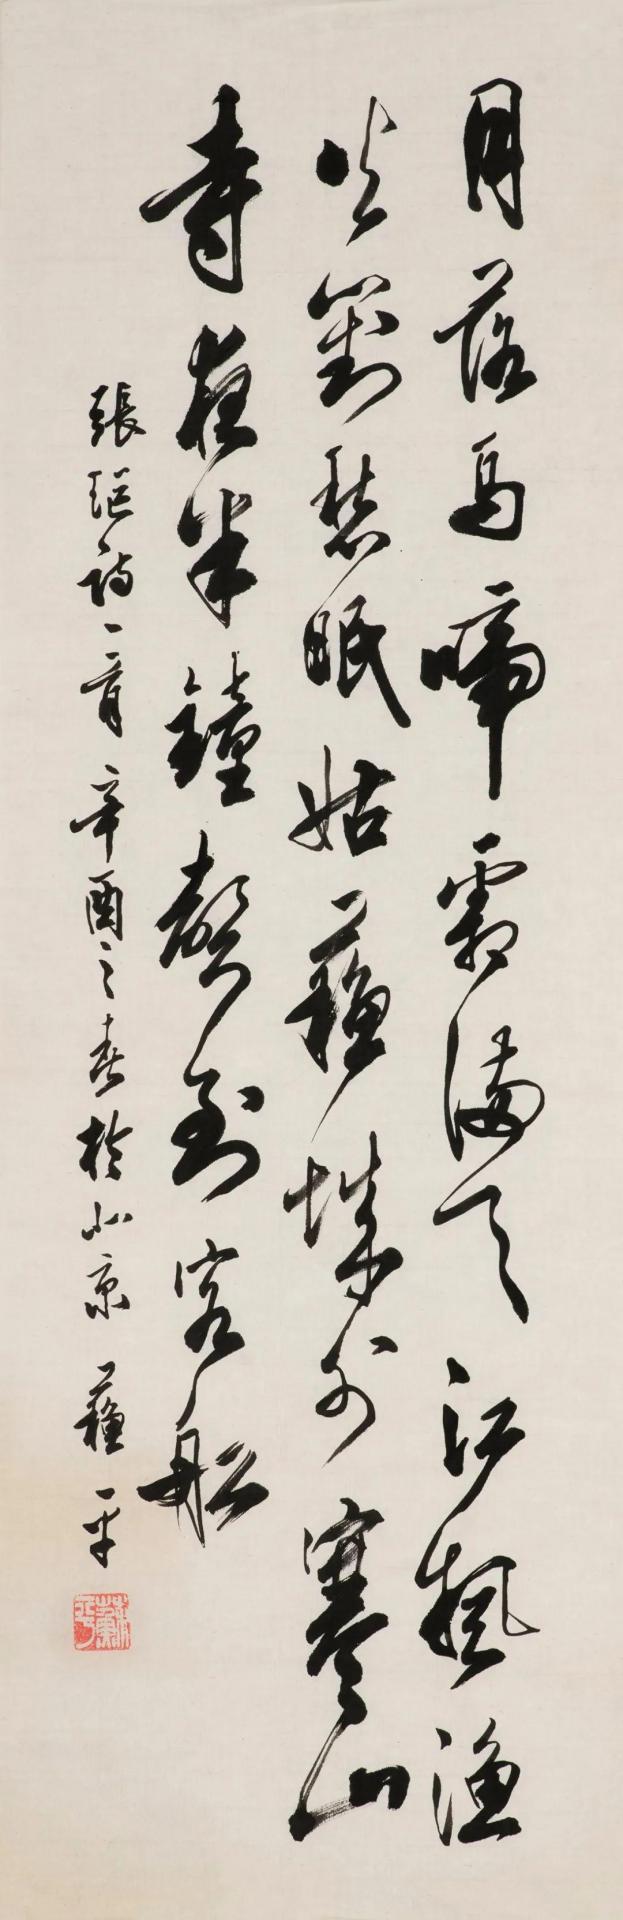 月落烏啼霜滿天江楓漁
火對愁眠姑蘇城外寒山
寺夜半鐘聲到客船
張继詩一首辛酉之春於北京蘇平